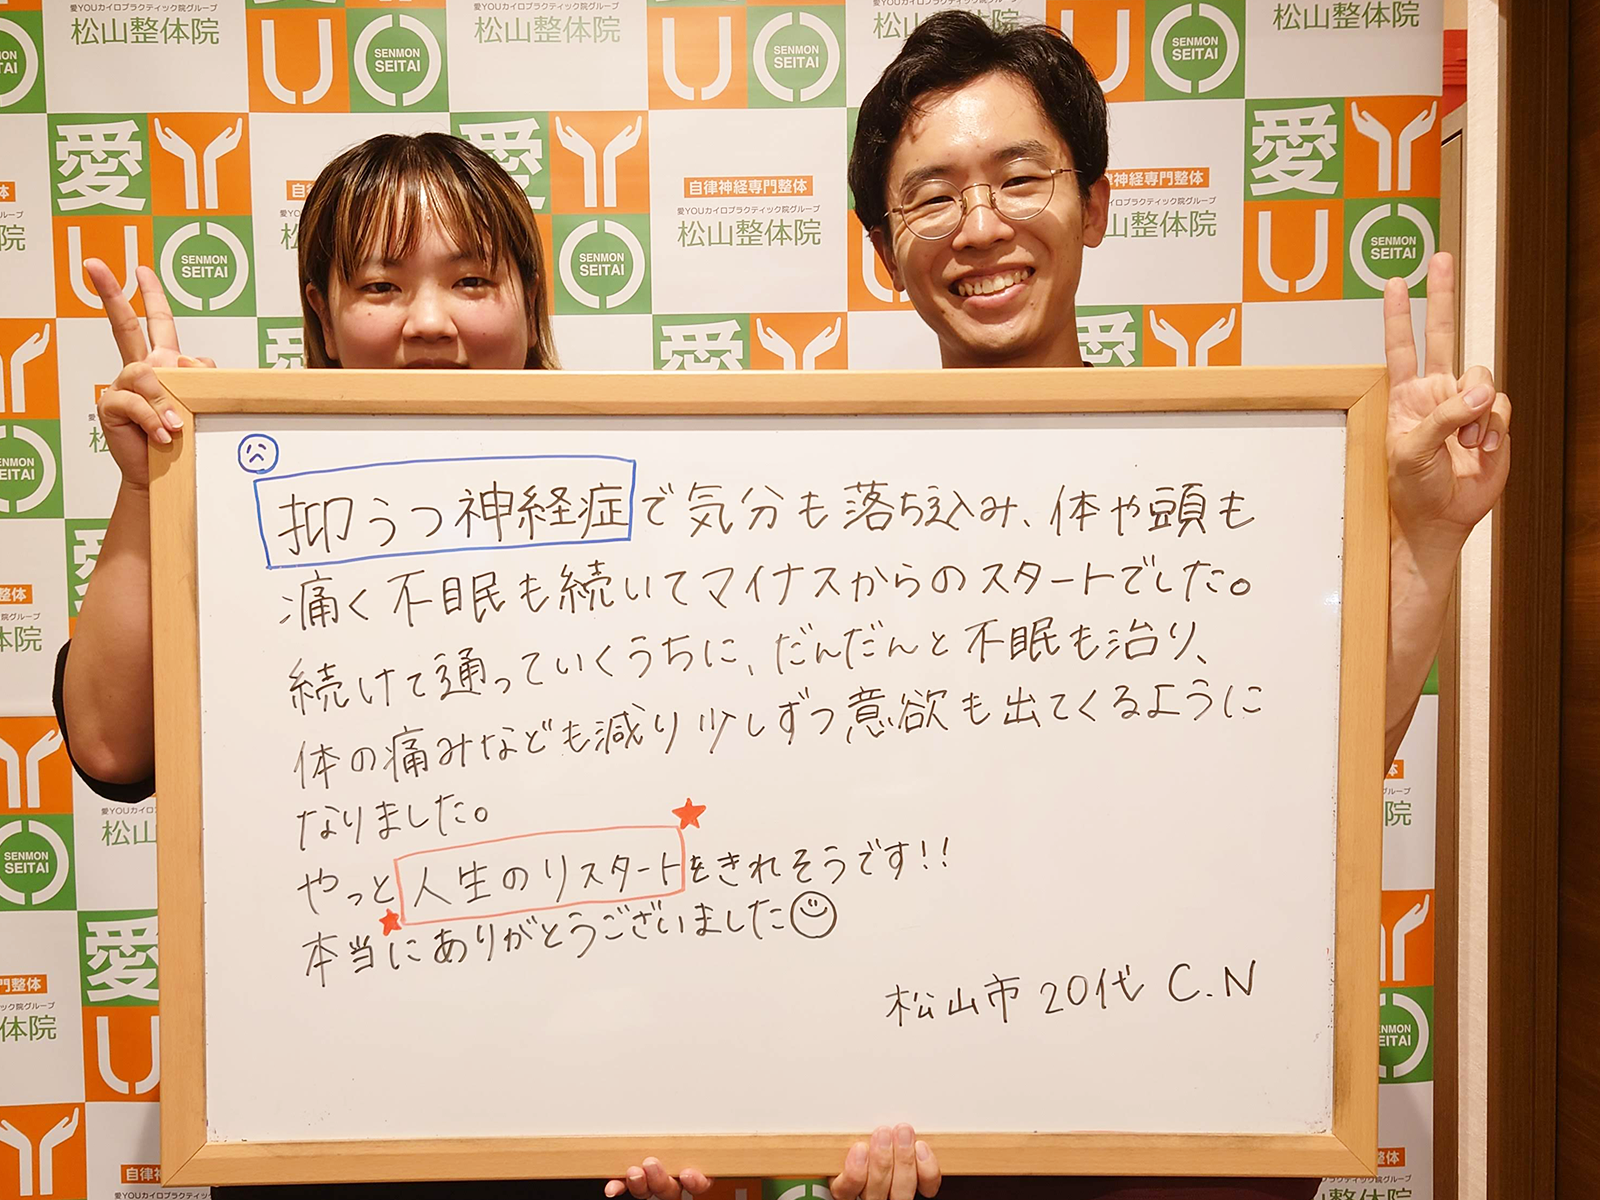 愛YOUカイロプラクティック院グループ
松山整体院
SENMON
SEITAI
愛
自律神経専門整体
愛YOUカイロプラクティック院グループ
松山整体院
SENMON
SEITAI
抑うつ神経症で気分も落ち込み、体や頭も
痛く不眠も続いてマイナスからのスタートでした。
続けて通っていくうちに、だんだんと不眠も治り、
体の痛みなども減り少しずつ意欲も出てくるように
なりました。
やっと人生のリスタートをきれそうです!!
本当にありがとうございました
松山市 20代 C.N